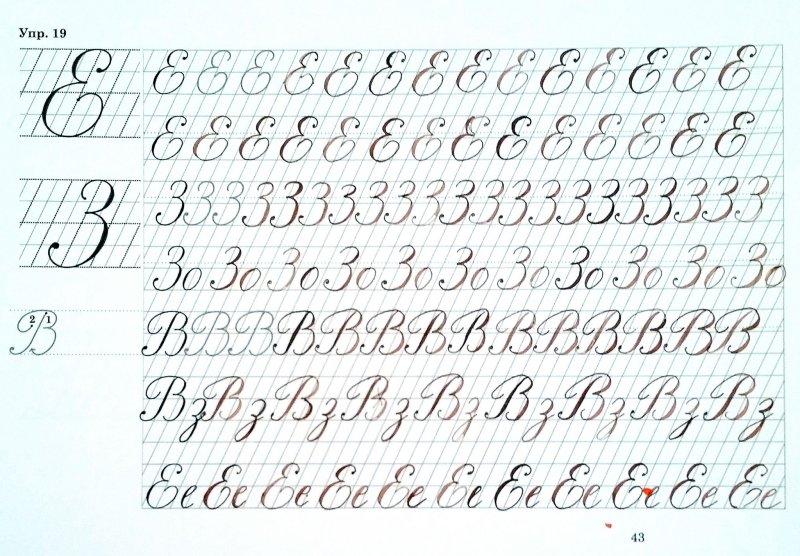 Упр. 19
Е
Е Е Е Е Е Е Е Е Е Е Е Е Е Е
Е Е Е Е Е Е Е Е Е Е Е Е Е Е
З
З З З З З З З З З З З З З З З З З З З З З
Зо Зо Зо Зо Зо Зо Зо Зо Зо Зо Зо
2 1
В
В В В В В В В В В В В В В В
Вз Вз Вз Вз Вз Вз Вз Вз Вз
Ее Ее Ее Ее Ее Ее Ее Ее Ее Ее Ее
43